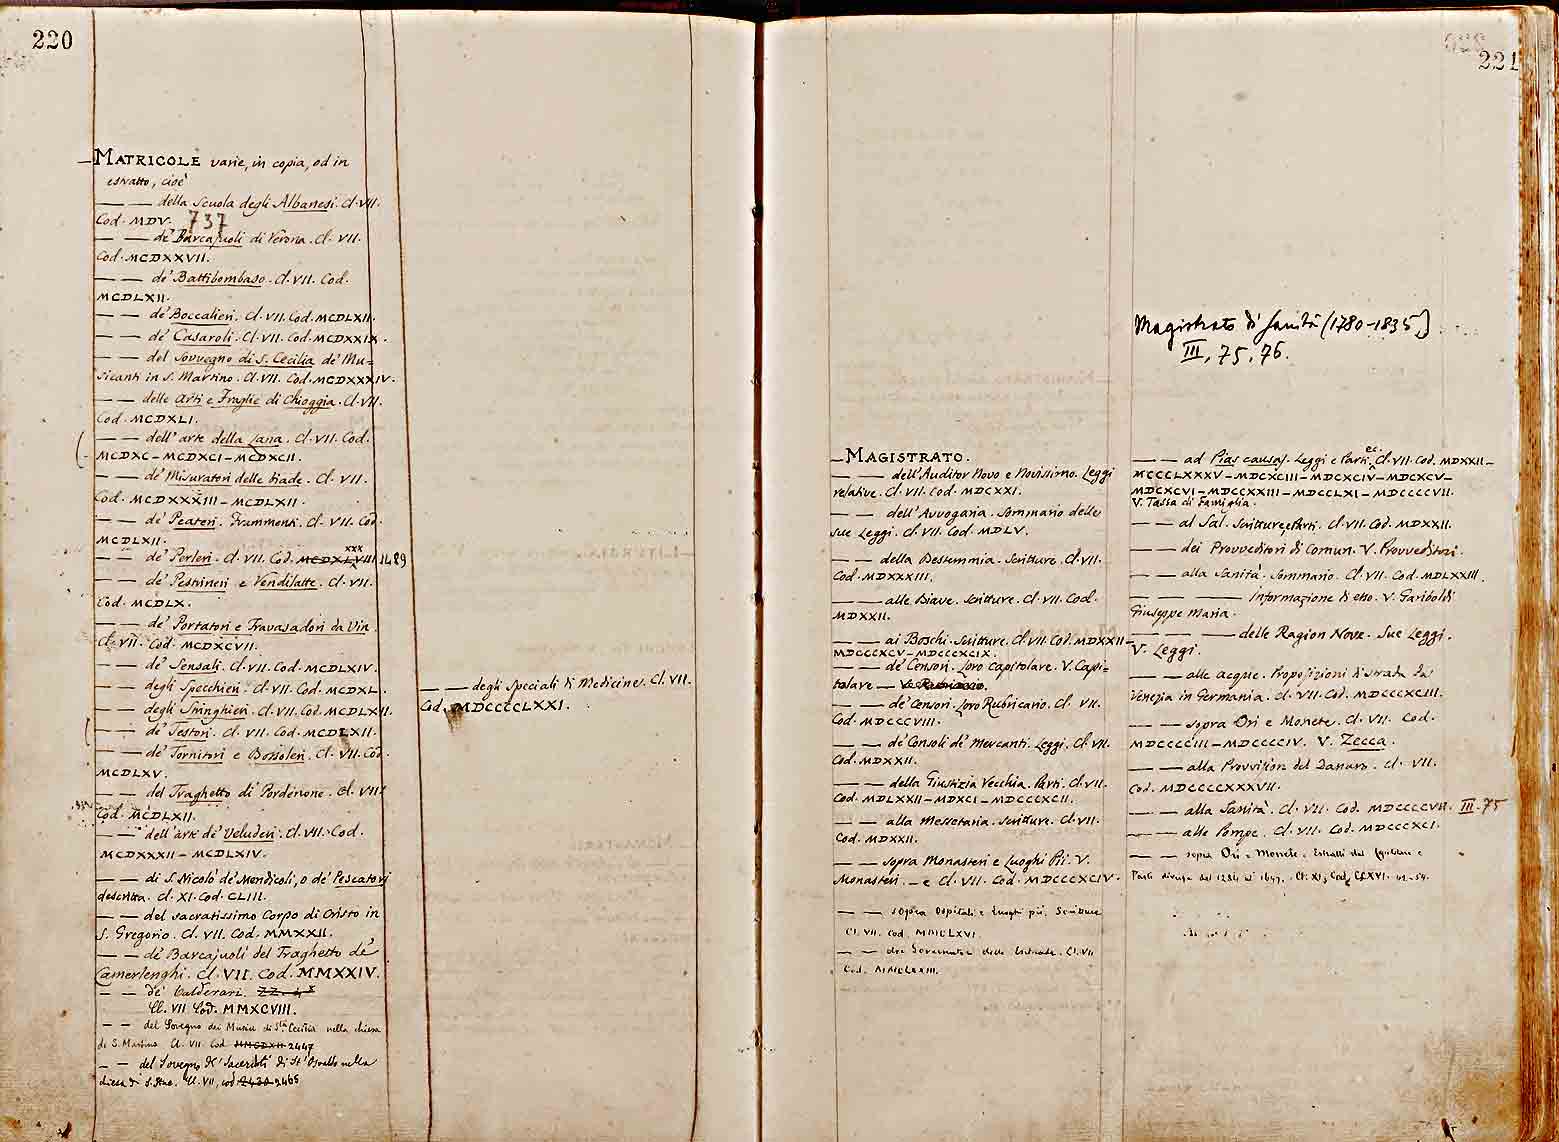 220
— MATRICOLE varie, in copia, od in
estratto, cioè
— — della Scuola degli Albanesi. Cl. VII.
Cod. MDV. 737
— — de' Barcajuoli di Verona. Cl. VII.
Cod. MCDXXVII.
— — de' Battibombaso. Cl. VII. Cod.
MCDLXII.
— — de' Boccalieri. Cl. VII. Cod. MCDLXII.
— — de' Casaroli. Cl. VII. Cod. MCDXXIX.
— — del Sovvegno di S. Cecilia de' Mu=
sicanti in S. Martino. Cl. VII. Cod. MCDXXXIV.
— — delle Arti e Fraglie di Chioggia. Cl. VII.
Cod. MCDXLI.
— — dell'arte della Lana. Cl. VII. Cod.
MCDXC — MCDXCI — MCDXCII.
— — de' Misuratori delle biade. Cl. VII.
Cod. MCDXXXIII — MCDLXII.
— — de' Peateri. Frammenti. Cl. VII. Cod.
MCDLXII.
— — de' Perleri. Cl. VII. Cod. 1489
— — de' Pestrineri e Vendilatte. Cl. VII.
Cod. MCDLX.
— — de' Portatori e Travasadori da Vin.
Cl. VII. Cod. MCDXCVII.
— — de' Sensali. Cl. VII. Cod. MCDLXIV.
— — degli Specchieri. Cl. VII. Cod. MCDXL.
— — degli Stringhieri. Cl. VII. Cod. MCDLXII.
— — de' Testori. Cl. VII. Cod. MCDLXII.
— — de' Tornitori e Bossoleri. Cl. VII. Cod.
MCDLXV.
— — del Traghetto di Pordenone. Cl. VII.
Cod. MCDLXII.
— — dell'arte de' Veluderi. Cl. VII. Cod.
MCDXXXII — MCDLXIV.
— — di S. Nicolò de' Mendicoli, o de' Pescatori
descritta. Cl. XI. Cod. CLIII.
— — del sacratissimo Corpo di Cristo in
S. Gregorio. Cl. VII. Cod. MMXXII.
— — de' Barcajuoli del Traghetto de'
Camerlenghi. Cl. VII. Cod. MMXXIV.
— — de' Calderari.
Cl. VII Cod. MMXCVIII.
— — del Sovegno dei Musici di Sta Cecilia nella chiesa
di S. Martino Cl. VII. Cod 2447
— — del Sovegno de' Sacerdoti di nella
chiesa di Cl. VII, cod 2465
— — degli Speciali di Medicine. Cl. VII.
Cod. MDCCCCLXXI.
221
— MAGISTRATO.
— — dell'Auditor Novo e Novissimo. Leggi
relative. Cl. VII. Cod. MDCXXI.
— — dell'Avvogaria. Sommario delle
sue Leggi. Cl. VII. Cod. MDLV.
— — della Bestemmia. Scritture. Cl. VII.
Cod. MDXXXIII.
— — alle Biave. Scritture. Cl. VII. Cod.
MDXXII.
— — ai Boschi. Scritture. Cl. VII. Cod. MDXXII —
MDCCCXCV — MDCCCXCIX.
— — de' Censori. Loro capitolare. V. Capi=
tolare —
— — de' Censori. Loro Rubricario. Cl. VII.
Cod. MDCCCVIII.
— — de' Consoli de' Mercanti. Leggi. Cl. VII.
Cod. MDXXII.
— — della Giustizia Vecchia. Parti. Cl. VII.
Cod. MDLXXII — MDXCI — MDCCCXCII.
— — alla Messetaria. Scritture. Cl. VII.
Cod. MDXXII.
— — sopra Monasteri e Luoghi Pii. V.
Monasteri. — e Cl. VII. Cod. MDCCCXCIV.
— — sopra Ospitali e Luoghi pii. Scritture
Cl. VII. Cod.
— — dei Governatori delle Entrade. Cl. VII
Cod.
Magistrato di Sanità (1780-1835)
III, 75, 76.
— — ad Pias causas. Leggi e Parti. ec. Cl. VII. Cod. MDXXII —
MCCCLXXXV — MDCXCIII — MDCXCIV — MDCXCV —
MDCXCVI — MDCCXXIII — MDCCLXI — MDCCCCVII.
V. Tassa di Famiglia.
— — al Sal. Scritture, e Parti. Cl. VII. Cod. MDXXII.
— — dei Provveditori di Comun. V. Provveditori.
— — alla Sanità. Sommario. Cl. VII. Cod. MDLXXIII.
— — — Informazione di esso. V. Gariboldi
Giuseppe Maria.
— — — delle Ragion Nove. Sue Leggi.
V. Leggi.
— — alle acque. Proposizioni di strada da
Venezia in Germania. Cl. VII. Cod. MDCCCXCIII.
— — sopra Ori e Monete. Cl. VII. Cod.
MDCCCCIII — MDCCCCIV. V. Zecca.
— — alla Provvision del Danaro. Cl. VII.
Cod. MDCCCCXXXVII.
— — alla Sanità. Cl. VII. Cod. MDCCCCVII. III. 75
— — alle Pompe. Cl. VII. Cod. MDCCCXCI.
— — sopra Ori e Monete. Estratti dal Capitolare e
Parti diverse dal 1284 al 1647. Cl. XI, Cod. CLXVI.